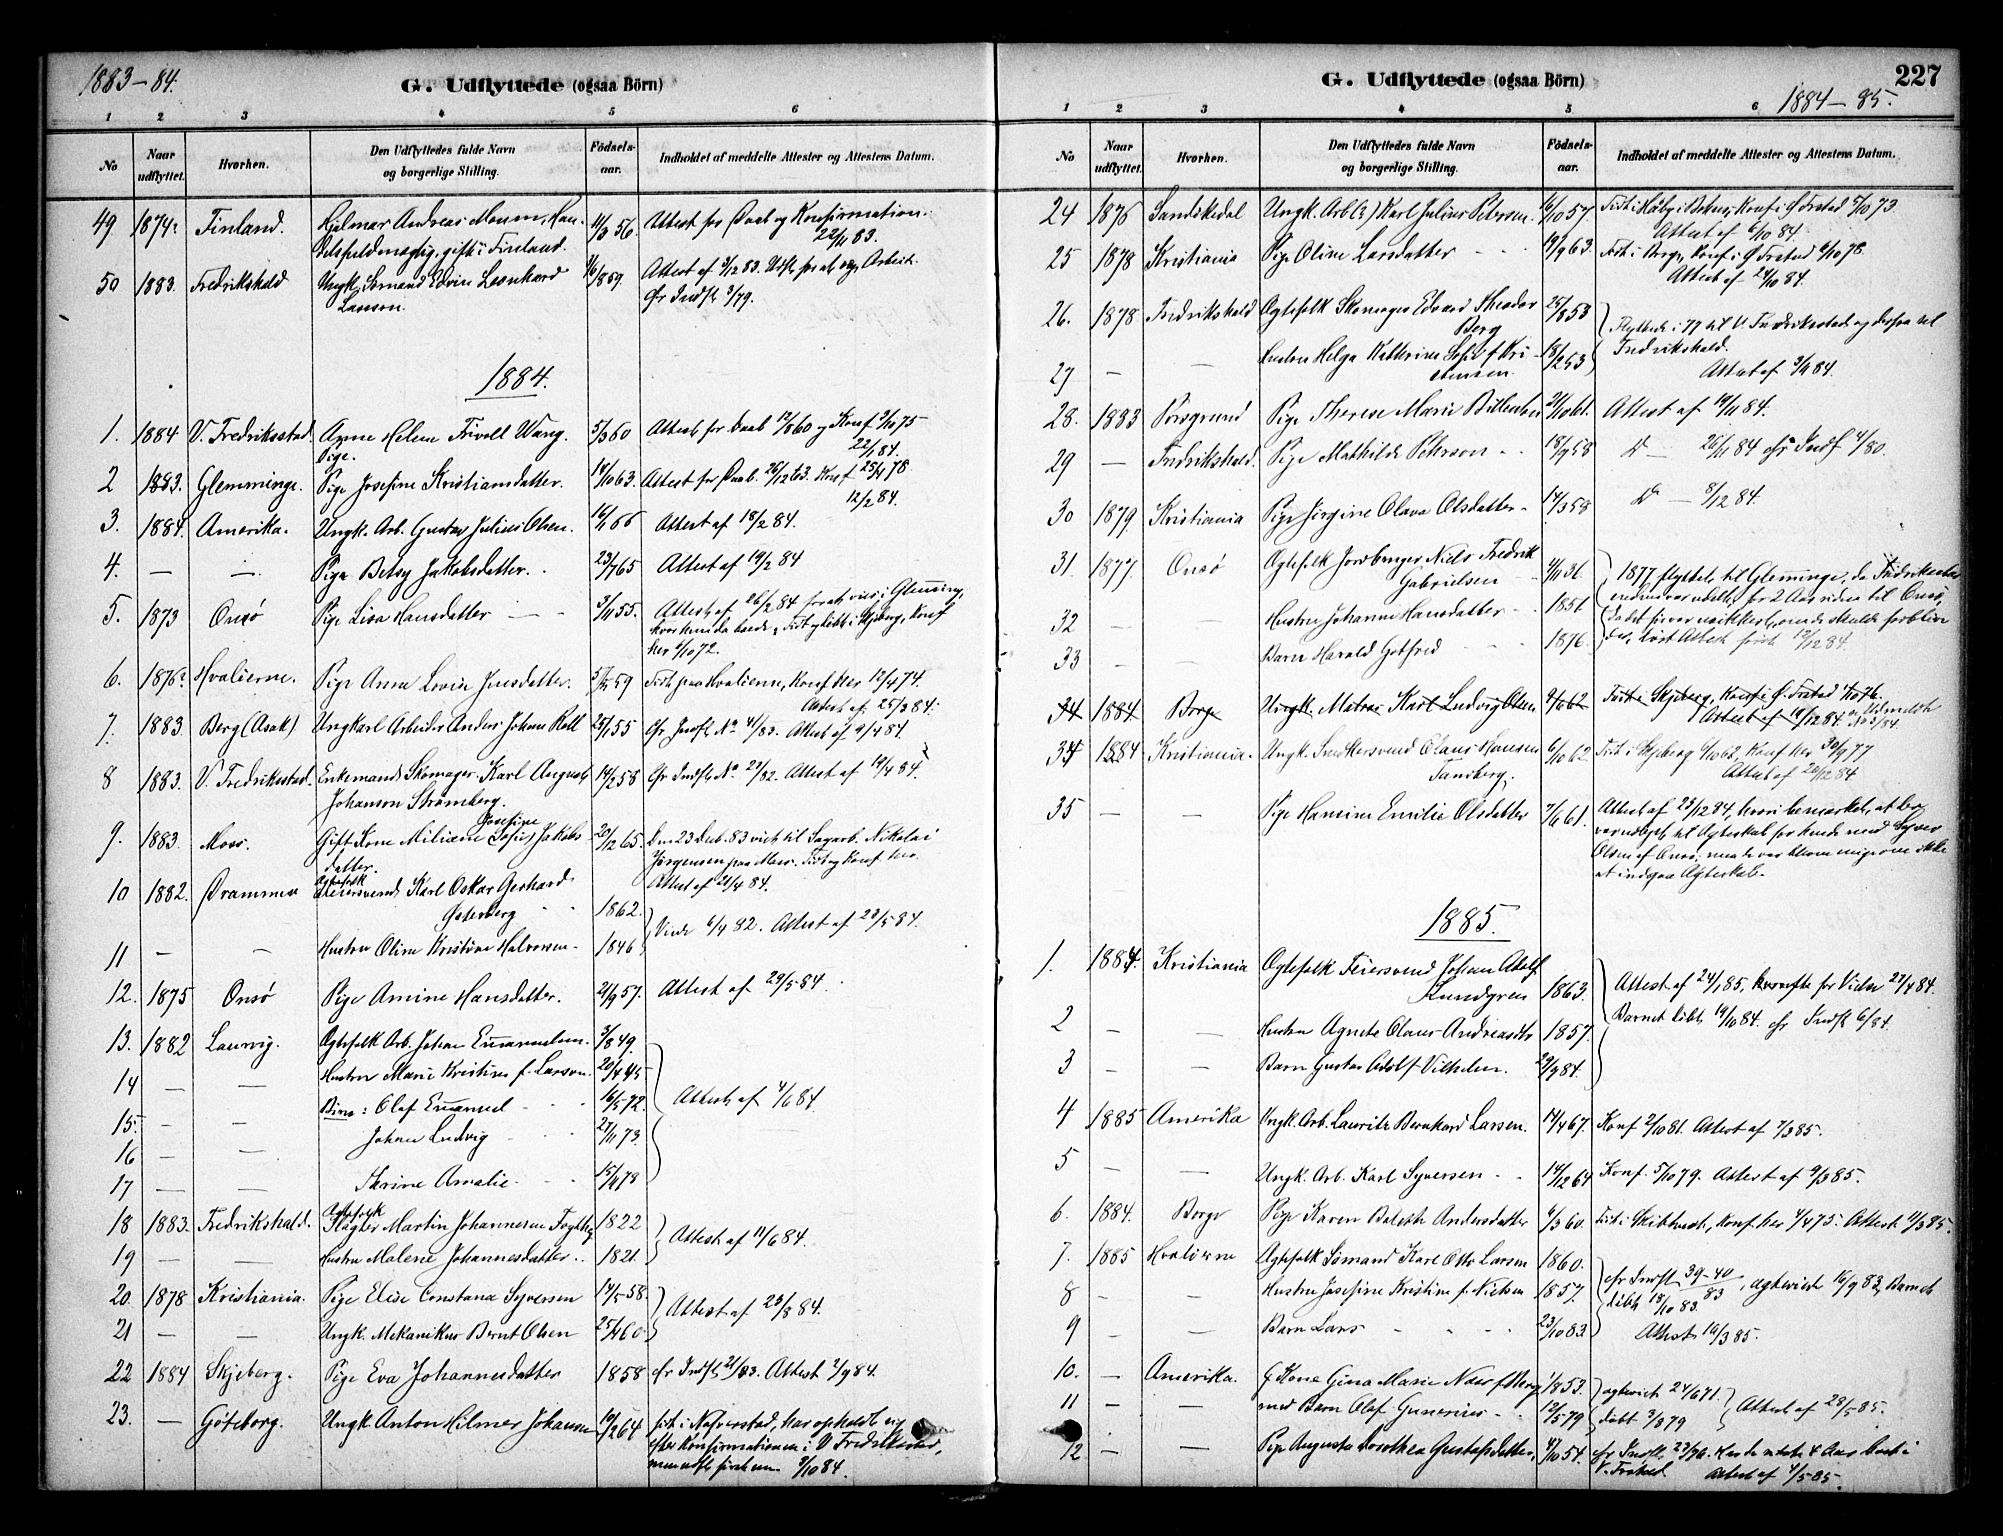 1883-84.
G. Udflyttede (ogsaa Börn)
1 2 3 4 5 6
No
Naar udflyttet.
Hvorhen.
Den Udflyttedes fulde Navn og borgerlige Stilling.
Födsels-aar.
Indholdet af meddelte Attester og Attestens Datum.
49 1874? Finland. Hjalmar Andreas Moum, Han- 11/3 56. Attest for Daab og Konfirmation.
gift i Finland. 22/11 83.
50 1883. Fredrikshald Ungk. Edvin Leonhard 859 Attest af 3/12 83.
Larsson. Cfr Indfl. 3/79.
1884.
1. 1884 V. Fredriksstad. Anne Helene Frivoll Wang. 5/3 60 Attest for Daab 12/8 60 og Konf 3/10 75
Pige. 22/1 84.
2 1883. Glemminge. Pige Josefine Kristiansdatter. 14/10 63. Attest for Daab. 26/12 63. Konf 25/4 78
12/2 84.
3. 1884. Amerika. Ungk. Arb. Gustav Julius Olsen. 16/11 66 Attest af 18/2 84.
4. — — Pige Betsy Jakobsdatter. 23/7 65 Attest af 19/2 84
5. 1873 Onsö Pige Lisa Hansdatter — — 3/11 55. Attest af 26/2 84
i Skjeberg, Konf
her 6/10 72.
6. 1876? Hvalöerne. Pige Anna Lovise Jensdatter. 59 Födt paa Hvalöerne, Konf her 12/4 74.
Attest af 25/3 84.
7. 1883. Berg (Asak) Ungkarl Arbeider Anders Johan Roll 25/1 55 Cfr Indfl. No 41/83. Attest af 9/4 84.
8 1883. V. Fredriksstad. Enkemand Skomager Karl August 14/2 58 Cfr Indfl. No 23/82. Attest af 19/4 84.
Johanson Strömberg.
Josefine
9. 1883. Moss. Gift Kone Miliane Sofie Jakobs- 20/12 65. Den 23 Dec. 83 viet til Sagarb. Nikolai
datter. Jörgensen paa Moss. Födt og Konf her.
Attest af 21/4 84.
Ægtefolk
10 1882. Drammen Feiersvend Karl Oskar Gerhard
Österberg 1862. Viede 6/4 82. Attest af 23/5 84.
11 — — Hustru Oline Kristine Halvorsen 1846
12. 1875 Onsö Pige Amine Hansdatter. 21/9 57. Attest af 29/5 84.
13. 1882 Laurvig. Ægtefolk Arb. Johan Emanuelsen. 3/8 49.
14 — — Hustru Marie Kristine f. Larsen. 20/4 45
15. — — Börn: Olaf Emanuel 16/5 72. Attest af 4/6 84.
16 — — Johan Ludvig 27/11 73.
17 — — Amalie 15/6 78
Ægtefolk
18 1883. Fredrikshald. Martin Johannesen 1822 Attest af 11/6 84.
19 — — Hustru Malene Johannesdatter. 1821.
20. 1878 Kristiania. Pige Elise Constana Syversen 14/5 58. Attest af 23/8 84.
21 — — Ungk. Mekaniker Bernt Olsen 25/4 60.
22 1884 Skjeberg. Pige Eva Johannesdatter 1858 cfr Indfl. 21/83. Attest 2/9 84.
23. — Göteborg. Ungk Anton Hilmer Johansen 19/2 64 födt i Naverstad, har opholdt sig
efter Konfirmationen i V Fredriksstad,
3/10 84.
G. Udflyttede (ogsaa Börn) 227
1884-85.
1 2 3 4 5 6
No
Naar udflyttet.
Hvorhen.
Den Udflyttedes fulde Navn og borgerlige Stilling.
Födsels-aar.
Indholdet af meddelte Attester og Attestens Datum.
24 1876 Sandskedal Ungk. Arb (?) Karl Julius Petersen. 6/10 57. Födt i Konf i Ø Frstad 5/10 73
Attest af 6/10 84.
25 1878 Kristiania Pige Oline Larsdatter 19/9 63. Födt i Borge, Konf i Ø Frstad 6/10 78.
Attest af 24/10 84.
26. 1878 Fredrikshald Ægtefolk Skomager Edvard Theodor 25/8 53
Berg Flyttede i 77 til V. Fredriksstad og derfra til
27 — — Hustru Helga Kathrine Sofie f. Kri- 18/2 53 Fredrikshald.
stensen. Attest af 3/11 84.
28. 1883 Porsgrund Pige Therese Marie 21/10 61. Attest af 19/11 84.
29 — Fredrikshald. Pige Mathilde Peterson 18/9 58 Do — 26/11 84 cfr Indf 4/80.
30 1879. Kristiania Pige Jörgine Olava Olsdatter 14/3 58 Do — 8/12 84
31. 1877. Onsö Ægtefolk Jordbruger Niels Fredrik
Gabrielsen 4/11 36. 1877 flyttet til Glemminge,
32 — — Hustru Johanne Hansdatter 1851 for 2 Aar siden til Onsö,
33 — — Barn Harald Gotfred 1876. Attest först 12/12 84.
34 1884 Borge Ungk. Matros Karl Ludvig Olsen 9/6 62 Födt i Skjeberg, Konf i Ø. Frstad 1/10 76.
Attest af 19/12 84. Udmeldt
34 1884 Kristiania. Ungk. Snedkersvend Olaus Hansen 6/10 62 Födt i Skjeberg 6/10 62, Konf her 30/9 77
Tansberg. Attest af 20/12 84
35 — — Pige Hansine Emilie Olsdatter 7/6 61. Attest af 23/12 84, hvori bemærket, at
til Ægteskab for hende med Syver
Olsen af Onsö, ikke
at indgaa Ægteskab.
1885.
1. 1884. Kristiania Ægtefolk Feiersvend Johan Adolf
Lundgren 1863. Attest af 24/1 85. for Vielse 27/4 84.
2 — — Hustru Agnete Olaus Andreasdtr 1857. Barnet döbt 19/10 84. cfr Indfl 6/84.
3 — — Barn Gustav Adolf Vilhelm. 29/9 84.
4 1885 Amerika Ungk. Arb. Lauritz Bernhard Larsen. 14/4 67. Konf 2/10 81. Attest af 7/3 85.
5 — — Ungk. Arb. Karl Syversen 14/12 64 Konf. 5/10 79. Attest af 9/3 85.
6. 1884. Borge Pige Karen Andersdatter 6/3 60. Födt i Konf her 4/4 75. Attest 11/3 85.
7. 1885 Hvalöerne Ægtefolk Sömand Karl Otto Larsen 1860.
8 — — Hustru Josefine Kristine f. Nielsen 1857. cfr Indfl. 39-40/83, ægteviede 16/9 83, Barnet
döbt 18/10 83.
9 — — Barn Lars 23/10 83. Attest 16/3 85.
10. — Amerika. G. Kone Gina Marie 1853. ægteviet 24/6 71.
11 — — med Barn Olaf Gunerius 12/5 79 döbt 3/8 79 Attest af 28/5 85.
12 — — Pige Augusta Dorothea Gustafsdatter 4/10 54. cfr Indfl. 23/76. 4 Aar i
V. Frstad. Attest af 4/5 85.